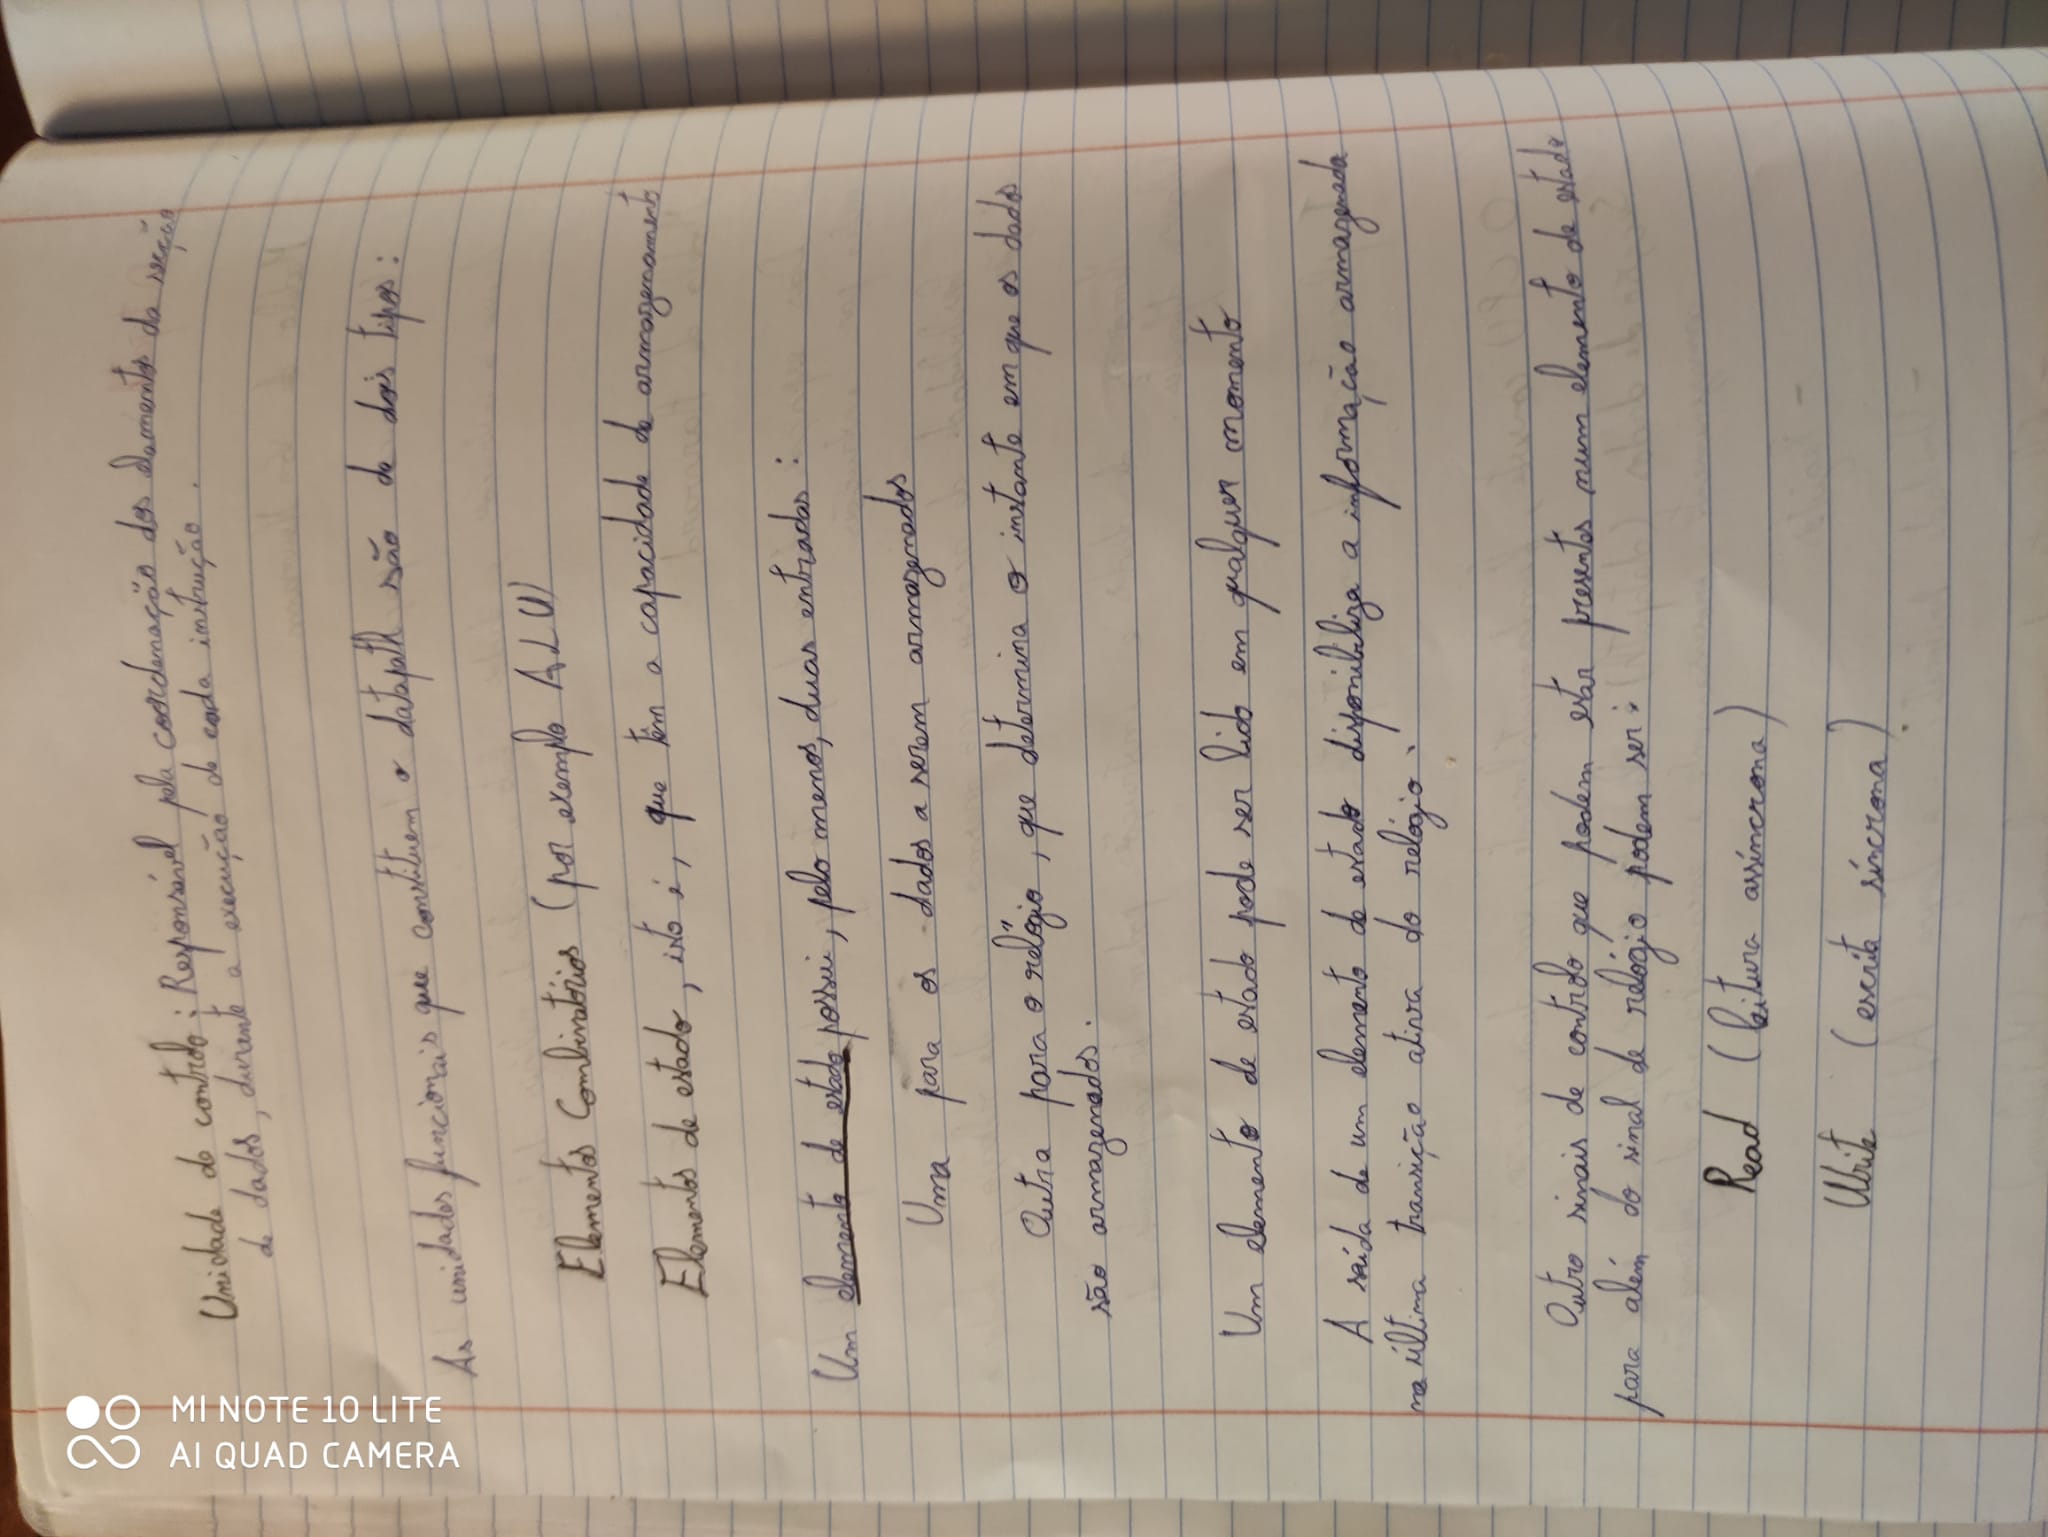 Unidade de controlo: Responsável pela coordenação dos elementos da secção
de dados, durante a execução de cada instrução.
As unidades funcionais que constituem o datapath são de dois tipos:
Elementos Combinatórios (por exemplo ALU)
Elementos de estado, isto é, que têm a capacidade de armazenamento
Um elemento de estado possui, pelo menos, duas entradas:
Uma para os dados a serem armazenados
Outra para o relógio, que determina o instante em que os dados
são armazenados.
Um elemento de estado pode ser lido em qualquer momento
A saída de um elemento de estado disponibiliza a informação armazenada
na última transição ativa do relógio.
Outro sinais de controlo que podem estar presentes num elemento de estado
para além do sinal de relógio podem ser:
Read (leitura assíncrona)
Write (escrita síncrona)
MI NOTE 10 LITE
AI QUAD CAMERA